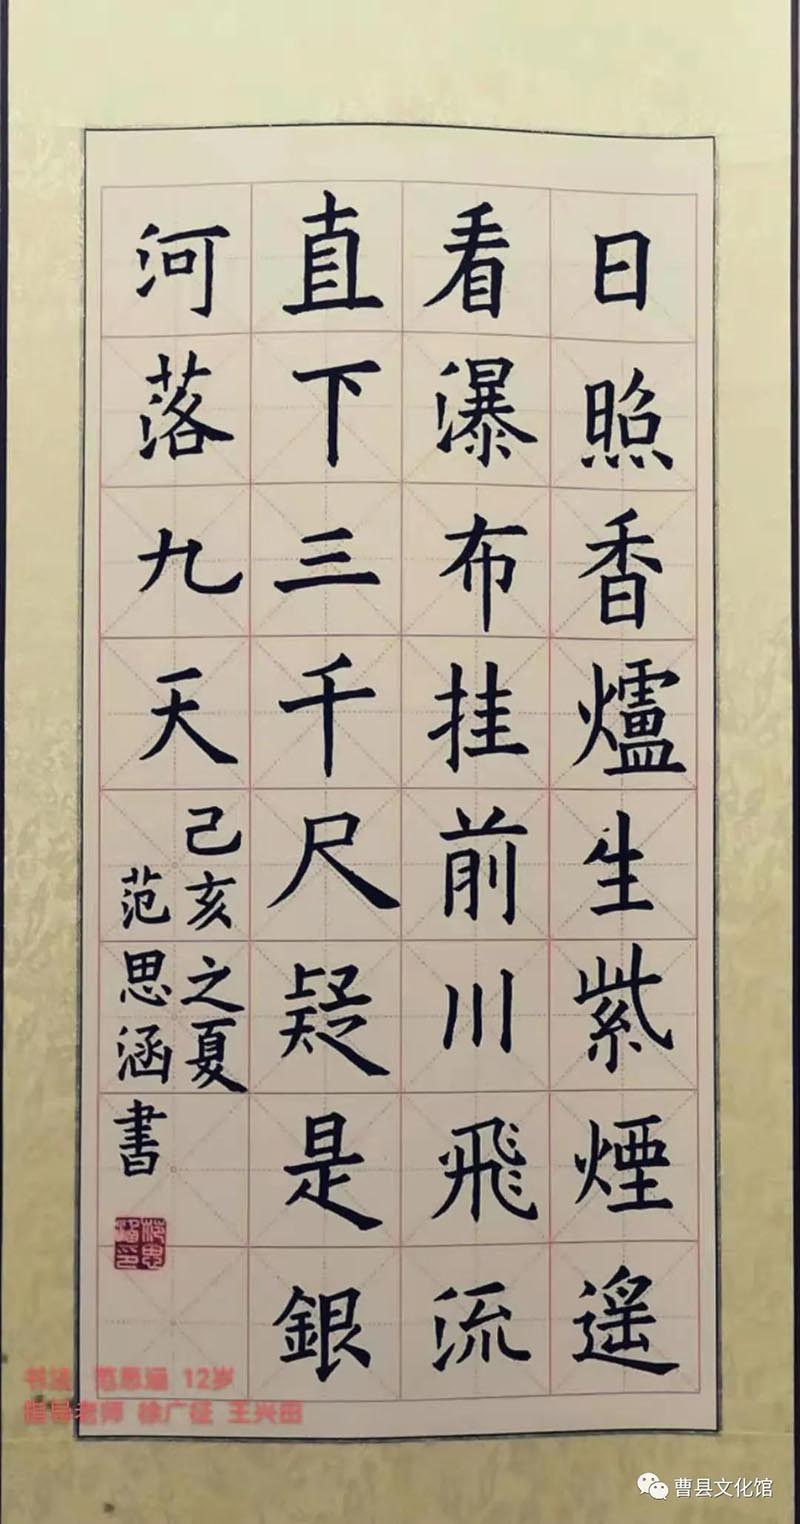 日照香爐生紫煙遥
看瀑布挂前川飛流
直下三千尺疑是銀
河落九天
己亥之夏
范思涵書
书法 范思涵 12岁
指导老师 徐广征 王兴田
曹县文化馆